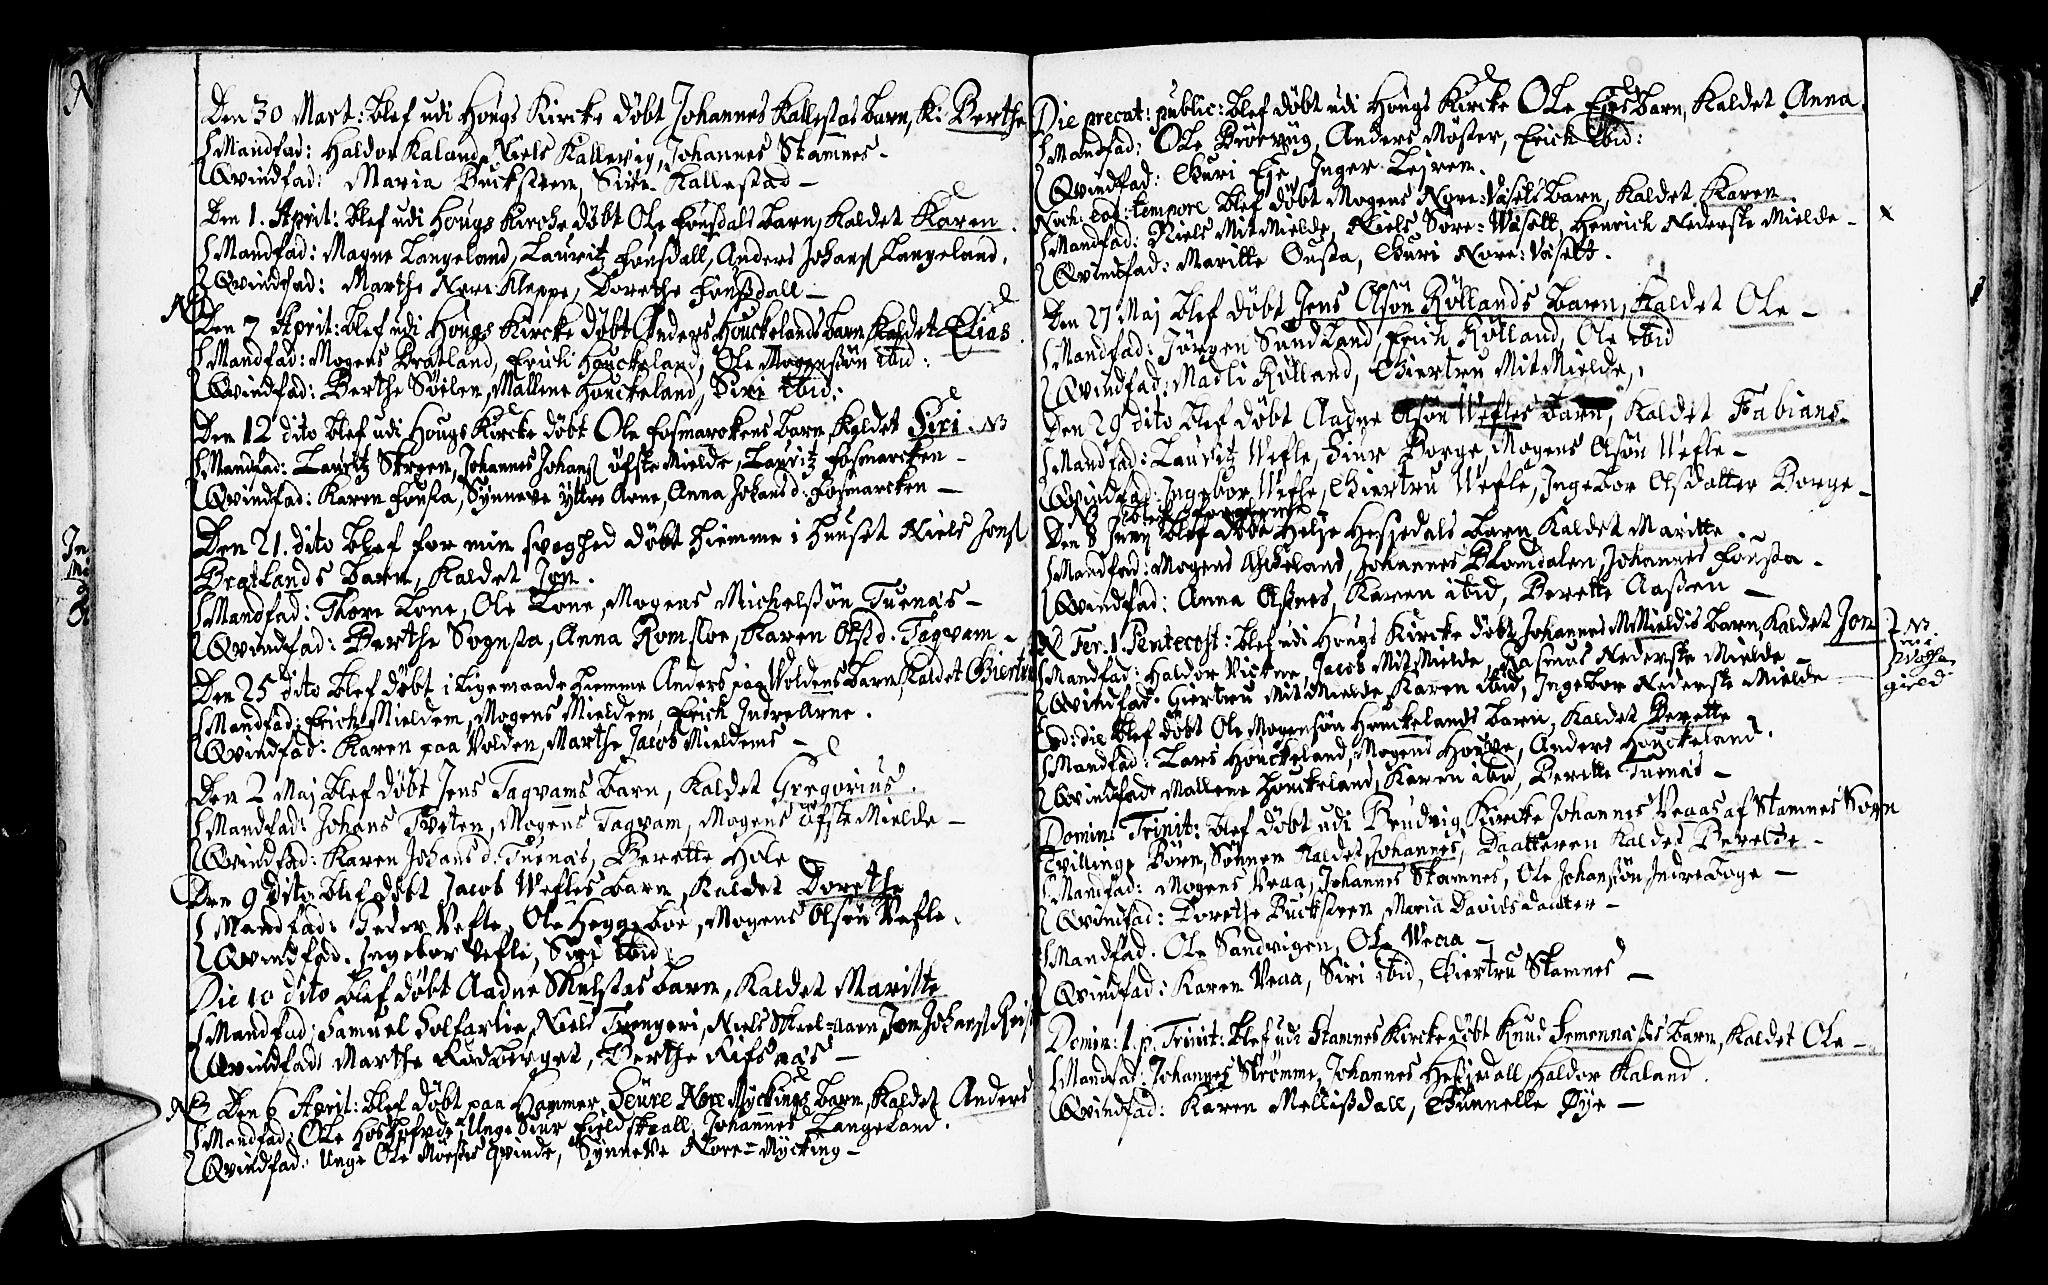 Den 30 Mart: blef udi Hougs Kircke døbt Johannes Kallestas barn, k: Berthe
Mandfad: Haldor Kaland, Niels Kallevig, Johannes Stamnes -
Qvindfad: Maria Bucksteen, Siri Kallestad -
Den 1. April: blef udi Hougs Kircke døbt Ole Fonsdals barn, kaldet Karen.
Mandfad: Magne Langeland, Lauritz Fonsdall, Anders Johans Langeland.
Qvindfad: Marthe Nore Kleppe, Dorethe Fonsdall -
NB
Den 7 April: blef udi Hougs Kircke døbt Anders Houckelands barn, kaldet Elias.
Mandfad: Mogens Bratland, Erich Houckeland, Ole Mogensøn ibid:
Qvindfad: Berthe Søilen, Mallene Houckeland, Siri ibid:
Den 12 dito blef udi Hougs Kircke døbt Ole Fosmarckens barn, kaldet Siri. NB
Mandfad: Lauritz Skreen, Johannes Johans øfste Mielde, Lauritz Fosmarcken -
Qvindfad: Karen Fonsta, Synneve Yttre Arne, Anna Johansd: Fosmarcken -
Den 21. dito blef for min svaghed døbt hiemme i huset Niels Jons
Bratlands barn, kaldet Jon.
Mandfad: Thore Lone, Ole Lone, Mogens Michelsøn Tuenäs -
Qvindfad: Berthe Sognsta, Anna Romsloe, Karen Olsd. Tagvam -
Den 25 dito blef døbt i ligemaade hiemme Anders paa Voldens barn, kaldet Giertru
Mandfad: Erich Mieldem, Mogens Mieldem, Erich Indre Arne.
Qvindfad: Karen paa Volden, Marthe Jacob Mieldems -
Den 2 Maj blef døbt Jens Tagvams barn, kaldet Gregorius.
Mandfad: Johans Tveten, Mogens Tagvam, Mogens øfste Mielde -
Qvindfad: Karen Johansd. Tuenäs, Berette Hole
Den 9 dito blef døbt Jacob Wefles barn, kaldet Dorethe
Mandfad: Peder Vefle, Ole Heggeboe, Mogens Olsøn Vefle.
Qvindfad. Ingebor Vefle, Siri ibid
Die 10 dito blef døbt Aadne Skulstas barn, kaldet Maritte
Mandfad: Samuel Solfarlie, Niels Trengeri, Niels Jon Johans
Qvindfad: Marthe Rødberget, Berthe Rifsaas -
NB Den 6 April: blef døbt paa Hammer Seure Nore Myckings barn, kaldet Anders
Mandfad: Ole Unge Siur Fieldskaall, Johannes Langeland.
Qvindfad: Unge Ole qvinde, Synneve Nore-Mycking -
Die precat: public: blef døbt udi Hougs Kircke Ole Ejes barn, kaldet Anna.
Mandfad: Ole Brørvüg, Anders Møster, Erich ibid:
Qvindfad: Guri Eje, Inger Lejren.
Noch: eod: tempore blef døbt Mogens Nore-Vasels barn, kaldet Karen.
Mandfad: Niels Mit Mielde, Niels Søre-Wasell, Henrich Nederste Mielde -
Qvindfad: Maritte Ousta, Guri Nore-Vasell.
Den 27 Maj blef døbt Jens Olsøn Röllands barn, kaldet Ole -
Mandfad: Jørgen Sundland, Erich Rölland, Ole ibid
Qvindfad: Madli Rölland, Giertru Mit Mielde,
Den 29 dito blef døbt Aadne Olsøn Wefles barn, kaldet Fabians.
Mandfad: Lauritz Wefle, Siur Borge, Mogens Olsøn Wefle -
Qvindfad: Ingebor Wefle, Giertru Wefle, Ingebor Olsdatter Borge -
NB
Den 8 Juny blef døbt Helje Hesjedals barn kaldet Maritte
Mandfad: Mogens, Johannes Blomdalen, Johannes Fonsta -
Qvindfad: Anna Olsnes, Karen ibid, Berette Aassen -
Fer. 1. Pentecost: blef udi Hougs Kircke døbt Johannes M Mieldis barn, kaldet Jon NB
Mandfad: Haldor Vickne, Jacob Mit Mielde, Rasmus Nederste Mielde -
Qvindfad: Giertru Mit Mielde, Karen ibid, Ingebor Nederste Mielde
Eod: die blef døbt Ole Mogensøn Houckelands barn, kaldet Berette
Mandfad: Lars Houckeland, Mogens Houve, Anders Houckeland.
Qvindfad: Mallene Houckeland, Karen ibid, Berette Tuenäs -
Domin: Trinit: blef døbt udi Brudvig Kircke Johannes Veaas af Stamnes Sogn
Tvillinge Børn, Sønnen kaldet Johannes, Daatteren kaldet Berette -
Mandfad: Mogens Veaa, Johannes Stamnes, Ole Johansøn Indre Boge -
Qvindfad: Dorethe Bucksteen, Maria Davids daatter -
Mandfad. Ole Sandvigen, Ole Weaa -
Qvindfad: Karen Veaa, Siri ibid, Giertru Stamnes -
Domin: 1. p. Trinit: blef udi Stamnes Kircke døbt Knud barn, kaldet Ole -
Mandfad: Johannes Strømme, Johannes Hesjedall, Haldor Kaland.
Qvindfad: Karen Mellisdall, Gunnelle Øye -